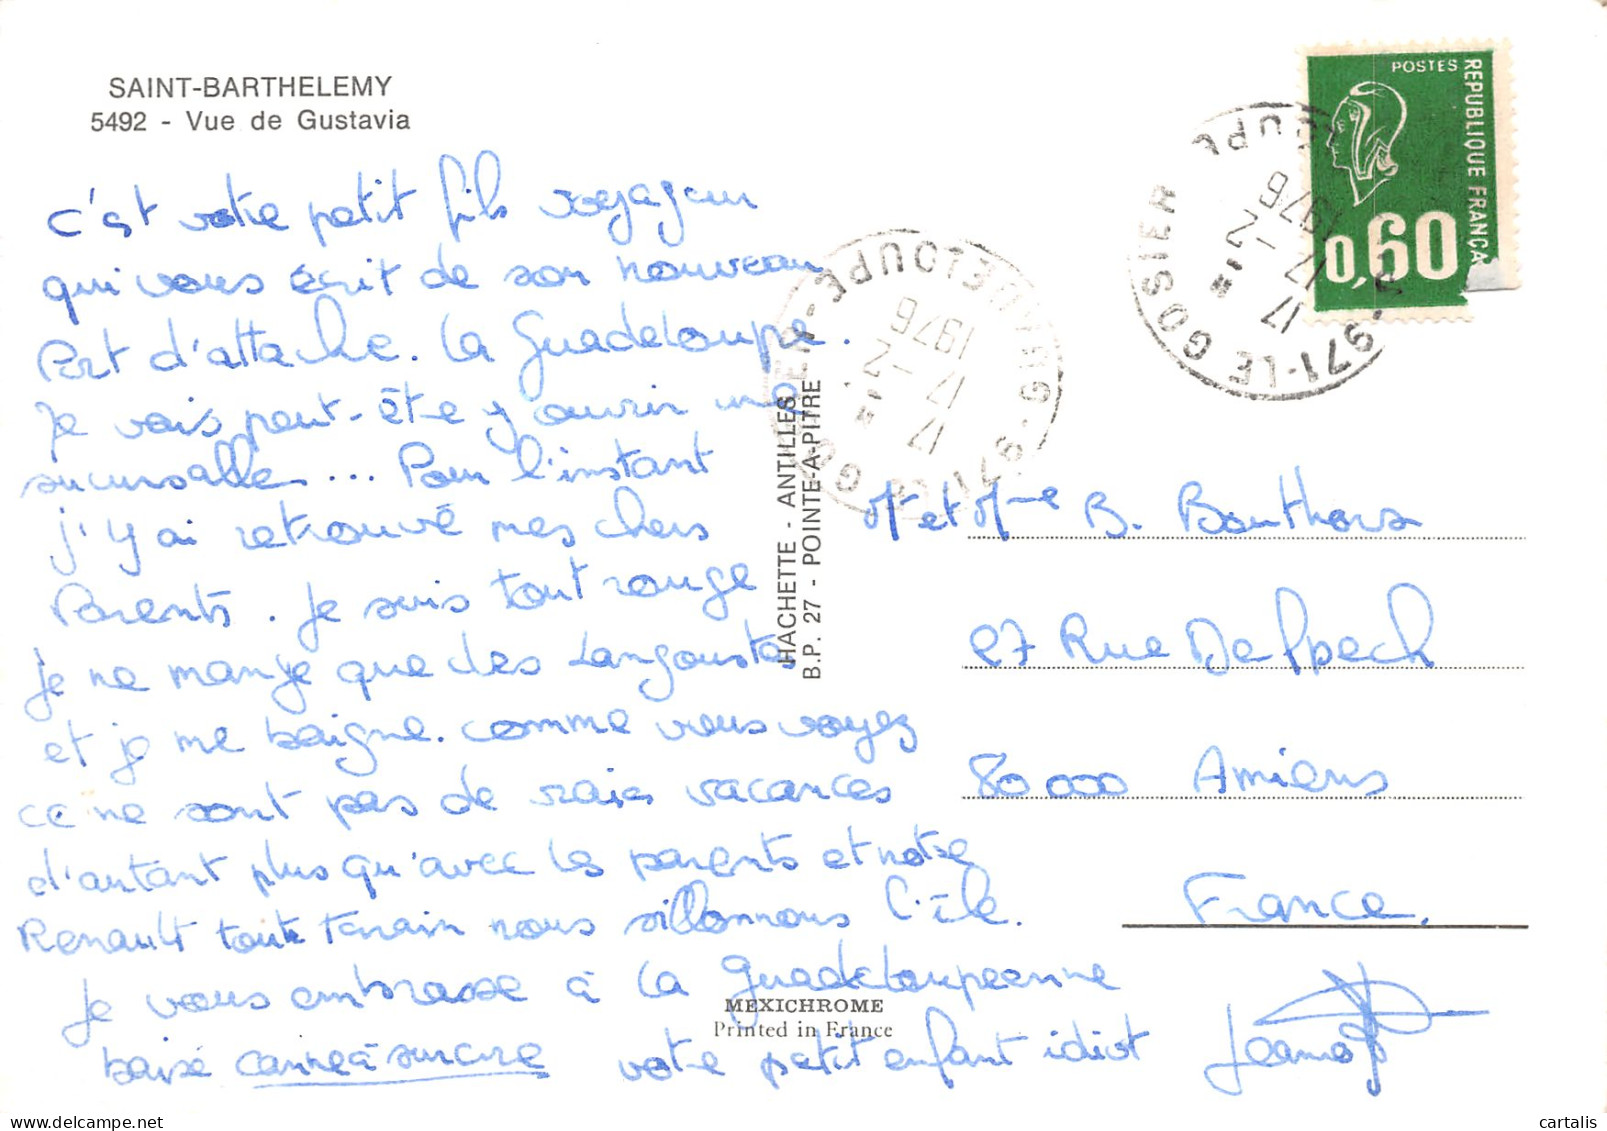 SAINT-BARTHELEMY
5492 - Vue de Gustavia
c'est votre petit fils voyageur
qui vous écrit de son nouveau
Port d'attache. La Guadeloupe.
Je vais peut-être y ouvrir une
succursalle ... Pour l'instant
j'y ai retrouvé mes chers
Parents. Je suis tout rouge
je ne mange que des Langoustes
et je me baigne. comme vous voyez
ce ne sont pas de vraies vacances
d'autant plus qu'avec les parents et notre
Renault toute terrain nous sillonnons l'île.
Je vous embrasse à la guadeloupéenne
baisé canne à sucre votre petit enfant idiot
HACHETTE - ANTILLES
B.P. 27 - POINTE-A-PITRE
MEXICHROME
Printed in France
971-LE GOSIER GUADELOUPE
17 H
17 - 2
1976
971-LE GOSIER
17 H
17 - 2
1976
POSTES
REPUBLIQUE FRANÇA
0,60
Mr et Mme B. Bouthors
27 Rue Delpech
80000 Amiens
France.
cartalis | delcampe.net